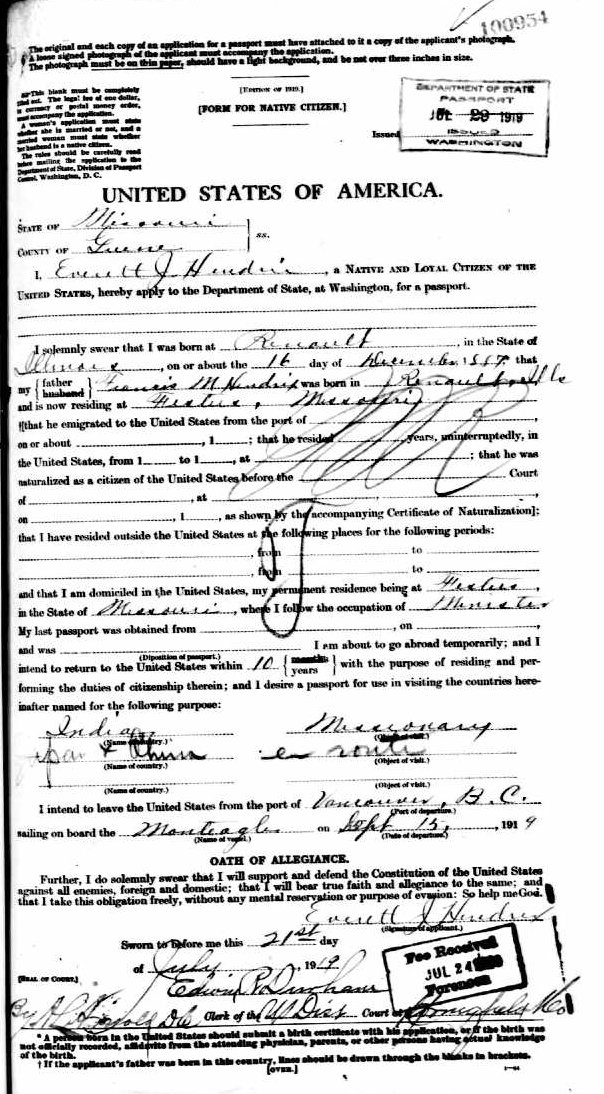 100954
The original and each copy of an application for a passport must have attached to it a copy of the applicant's photograph.
A loose signed photograph of the applicant must accompany the application.
The photograph must be on thin paper, should have a light background, and be not over three inches in size.
This blank must be completely
filled out. The legal fee of one dollar,
in currency or postal money order,
must accompany the application.
A woman's application must state
whether she is married or not, and a
married woman must state whether
her husband is a native citizen.
The rules should be carefully read
before mailing the application to the
Department of State, Division of Passport
Control, Washington, D. C.
[EDITION OF 1919.]
[FORM FOR NATIVE CITIZEN.]
Issued
DEPARTMENT OF STATE
PASSPORT
JUL 29 1919
ISSUED
WASHINGTON
UNITED STATES OF AMERICA.
STATE OF Missouri
COUNTY OF Greene
ss.
I, Everett J Hendrix, a NATIVE AND LOYAL CITIZEN OF THE
UNITED STATES, hereby apply to the Department of State, at Washington, for a passport.
I solemnly swear that I was born at Renault, in the State of
Illinois, on or about the 16 day of December, 1887, that
my {father husband} Francis M Hendrix was born in Renault Ills
and is now residing at Festus, Missouri
†[that he emigrated to the United States from the port of
on or about , 1 ; that he resided years, uninterruptedly, in
the United States, from 1 to 1 , at ; that he was
naturalized as a citizen of the United States before the Court
of , at ,
on , 1 , as shown by the accompanying Certificate of Naturalization];
that I have resided outside the United States at the following places for the following periods:
, from to
, from to
and that I am domiciled in the United States, my permanent residence being at Festus,
in the State of Missouri, where I follow the occupation of Minister
My last passport was obtained from , on ,
and was I am about to go abroad temporarily; and I
(Diposition of passport.)
intend to return to the United States within 10 {months years} with the purpose of residing and per-
forming the duties of citizenship therein; and I desire a passport for use in visiting the countries here-
inafter named for the following purpose:
India Missionary
(Name of country.) (Object of visit.)
Japan & China en route
(Name of country.) (Object of visit.)
(Name of country.) (Object of visit.)
I intend to leave the United States from the port of Vancouver, B. C.
(Port of departure.)
sailing on board the Monteagle on Sept 15, , 1919
(Name of vessel.) (Date of departure.)
OATH OF ALLEGIANCE.
Further, I do solemnly swear that I will support and defend the Constitution of the United States
against all enemies, foreign and domestic; that I will bear true faith and allegiance to the same; and
that I take this obligation freely, without any mental reservation or purpose of evasion: So help me God.
Everett J Hendrix
(Signature of applicant.)
Sworn to before me this 21st day
of July, 1919
[SEAL OF COURT.]
Edwin R Durham
Clerk of the US Dist Court at Springfield Mo
Fee Received
JUL 24
* A person born in the United States should submit a birth certificate with his application, or if the birth was
not officially recorded, affidavits from the attending physician, parents, or other persons having actual knowledge
of the birth.
† If the applicant's father was born in this country, lines should be drawn through the blanks in brackets.
[OVER.]